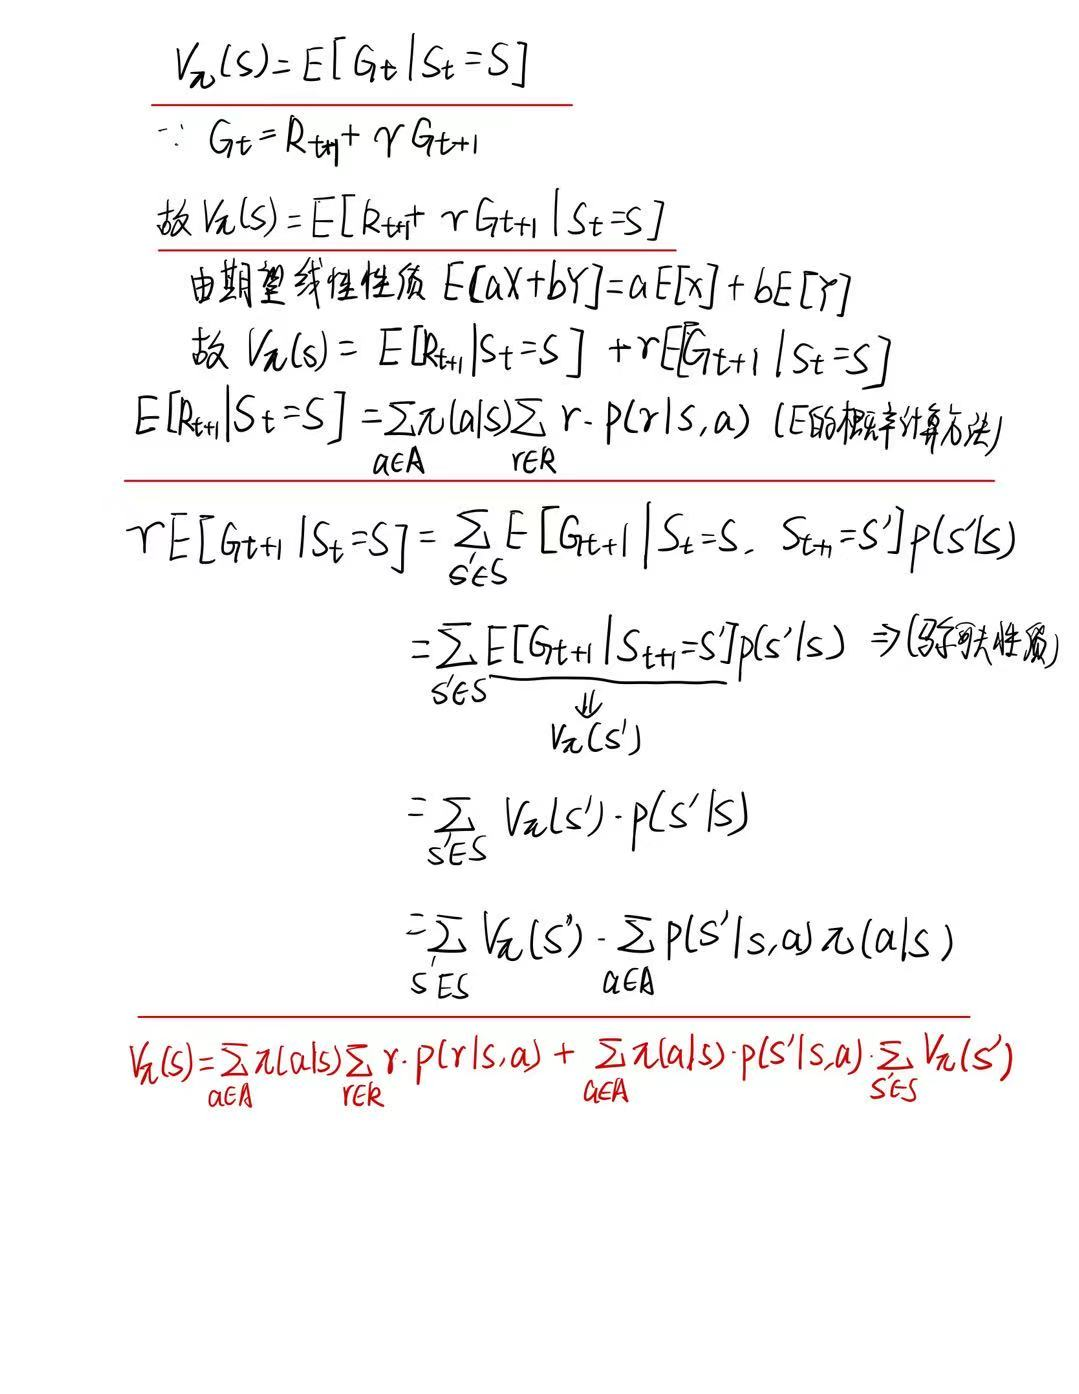 Vπ(s)=E[Gt|St=S]
∵ Gt=Rt+1+γGt+1
故Vπ(s)=E[Rt+1+γGt+1|St=S]
由期望线性性质 E[aX+bY]=aE[x]+bE[Y]
故 Vπ(s)=E[Rt+1|St=S]+γE[Gt+1|St=S]
E[Rt+1|St=S]=∑a∈A π(a|s)∑r∈R r·p(r|s,a) (E的概率计算方法)
γE[Gt+1|St=S]=∑s'∈S E[Gt+1|St=S, St+1=S']p(s'|s)
=∑s'∈S E[Gt+1|St+1=S']p(s'|s) ⇒(马尔可夫性质)
⇓
Vπ(s')
=∑s'∈S Vπ(s')·p(s'|s)
=∑s'∈S Vπ(s')·∑a∈A p(s'|s,a)π(a|s)
Vπ(s)=∑a∈A π(a|s)∑r∈R r·p(r|s,a)+∑a∈A π(a|s)·p(s'|s,a)·∑s'∈S Vπ(s')